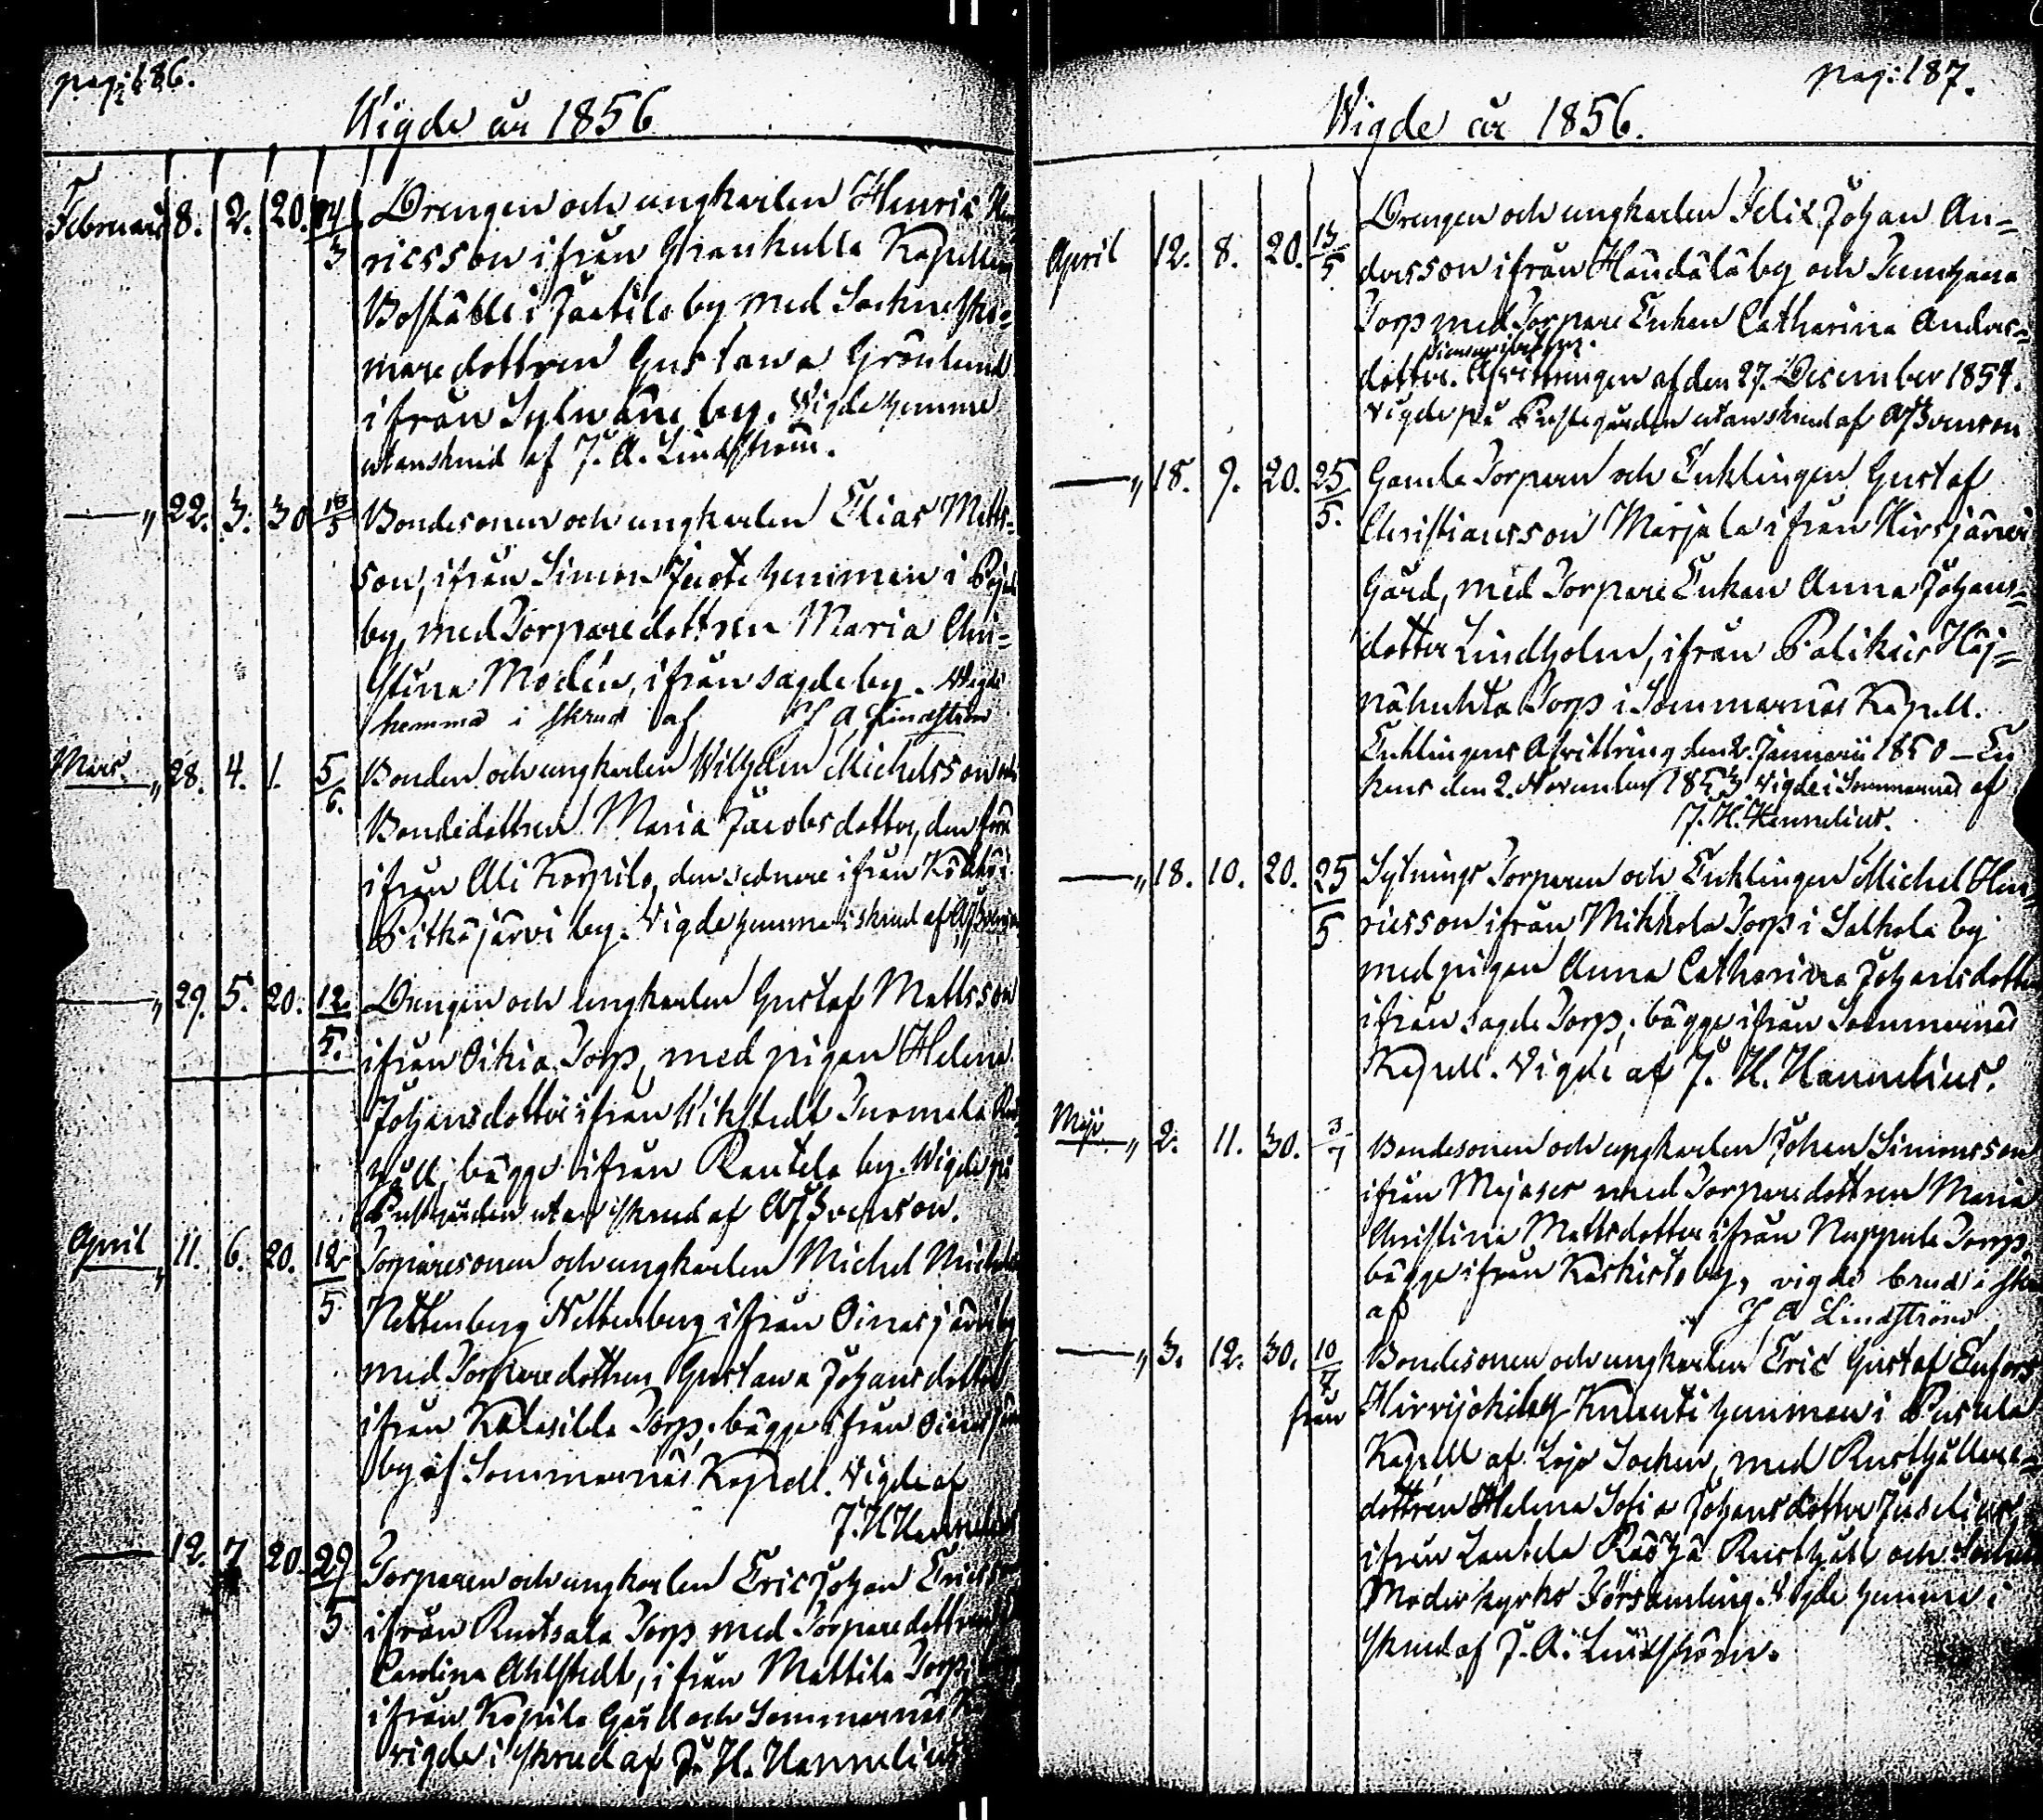 pag: 186.
Wigde år 1856
Februari 8. 2. 20. 24/3 Drengen och ungkarlen Henric Hen
ricsson ifrån Kapellans
Boställe i Jaatila by med Socknesko=
mare dottren Gustawa Grönlund
ifrån by. Wigde hemma
utan skrud af J. A. Lindström.
—„ 22. 3. 30 18/5 Bondesonen och ungkarlen Elias Matts=
son, ifrån Simon hemman i
by, med Torpare dottren Maria Chri=
stina Modén, ifrån sagde by. Wigde
hemma i skrud af J A Lindström
Mars. „ 28. 4. 1. 5/6. Bonden och ungkarlen Wilhelm Michelsson och
Bondedottren Maria Jacobsdotter, den förra
ifrån Ali Korpila, den sednare ifrån
Pitkäjärvi by. Wigde hemma i skrud af A. J. Svenson
—„ 29. 5. 20. 12/5. Drengen och ungkarlen Gustaf Mattsson
ifrån Oikia Torp, med pigan Helena
Johansdotter ifrån Wikstedt Tuomala Rust
håll, bägge ifrån Rautela by. Wigde på
Prestgården utan skrud af A J Svenson.
April „ 11. 6. 20. 12/5 Torparesonen och ungkarlen Michel Michels
Nettenberg Nettenberg ifrån Oinasjärvi by
med Torparedottren Gustawa Johansdotter
ifrån Kalasilda Torp, bägge ifrån Oinasjärvi
by af Sommarnäs Kapell. Wigde af
J. H. Hannelius
— 12. 7 20. 29/5 Torparen och ungkarlen Eric Johan Ericsson
ifrån Ruutsala Torp med Torparedottren
Carolina Ahlstedt, ifrån Mattila Torp,
ifrån Kopila Gård och Sommarnäs
vigde i skrud af J. H. Hannelius
pag: 187.
Wigde år 1856.
April 12. 8. 20. 13/5 Drengen och ungkarlen Felix Johan An=
dersson ifrån by och
Torp med Torpare Enkan Catharina Anders=
dotter. Afvittringen af den 27. December 1854.
Wigde på Prestegården utan skrud af A J Svenson
—„ 18. 9. 20. 25/5. Gamle Torparen och Enklingen Gustaf
Christiansson Marjala ifrån Hirsjärvi
Gård, med Torpare Enkan Anna Johans=
dotter Lindholm, ifrån Palikais
Torp i Sommarnäs Kapell.
Enklingens Afvittring den 2. Januarii 1850 — En
kans den 2. November 1853 Wigde i Sommarnäs af
J. H. Hannelius.
—„ 18. 10. 20. 25/5 Sytnings Torparen och Enklingen Michel Hen
ricsson ifrån Mikkola Torp i Salkola by
med pigan Anna Catharina Johansdotter
ifrån sagde Torp, bägge ifrån Sommarnäs
Kapell. Wigde af J. H. Hannelius.
Maji „ 2. 11. 30. 3/7 Bondesonen och ungkarlen Johan Simonsson
ifrån Majaser med Torparedottren Maria
Christina Mattsdotter ifrån Nuppula Torp,
bägge ifrån Kaskisto by, vigde brud i skrud
af J A Lindström
—„ 3. 12. 30. 10/7 Bondesonen och ungkarlen Eric Gustaf Enfors
från Hirvijoki by Knuuti hemman i Pusula
Kapell af Lojo Socken, med Rusthållare=
dottren Helena Sofia Johansdotter Juselius,
ifrån Lautela Rusthåll och
Moderkyrko Församling. Wigde hemma i
skrud af J. A. Lindström.